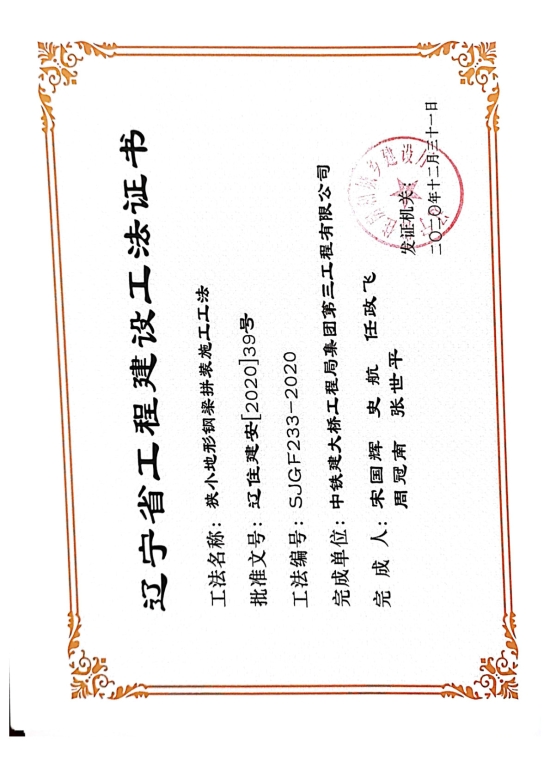 辽宁省工程建设工法证书
工法名称：狭小地形钢梁拼装施工工法
批准文号：辽住建安[2020]39号
工法编号：SJGF233-2020
完成单位：中铁建大桥工程局集团第三工程有限公司
完成人：宋国辉 史航 任政飞
周冠南 张世平
发证机关：
二〇二〇年十二月三十一日